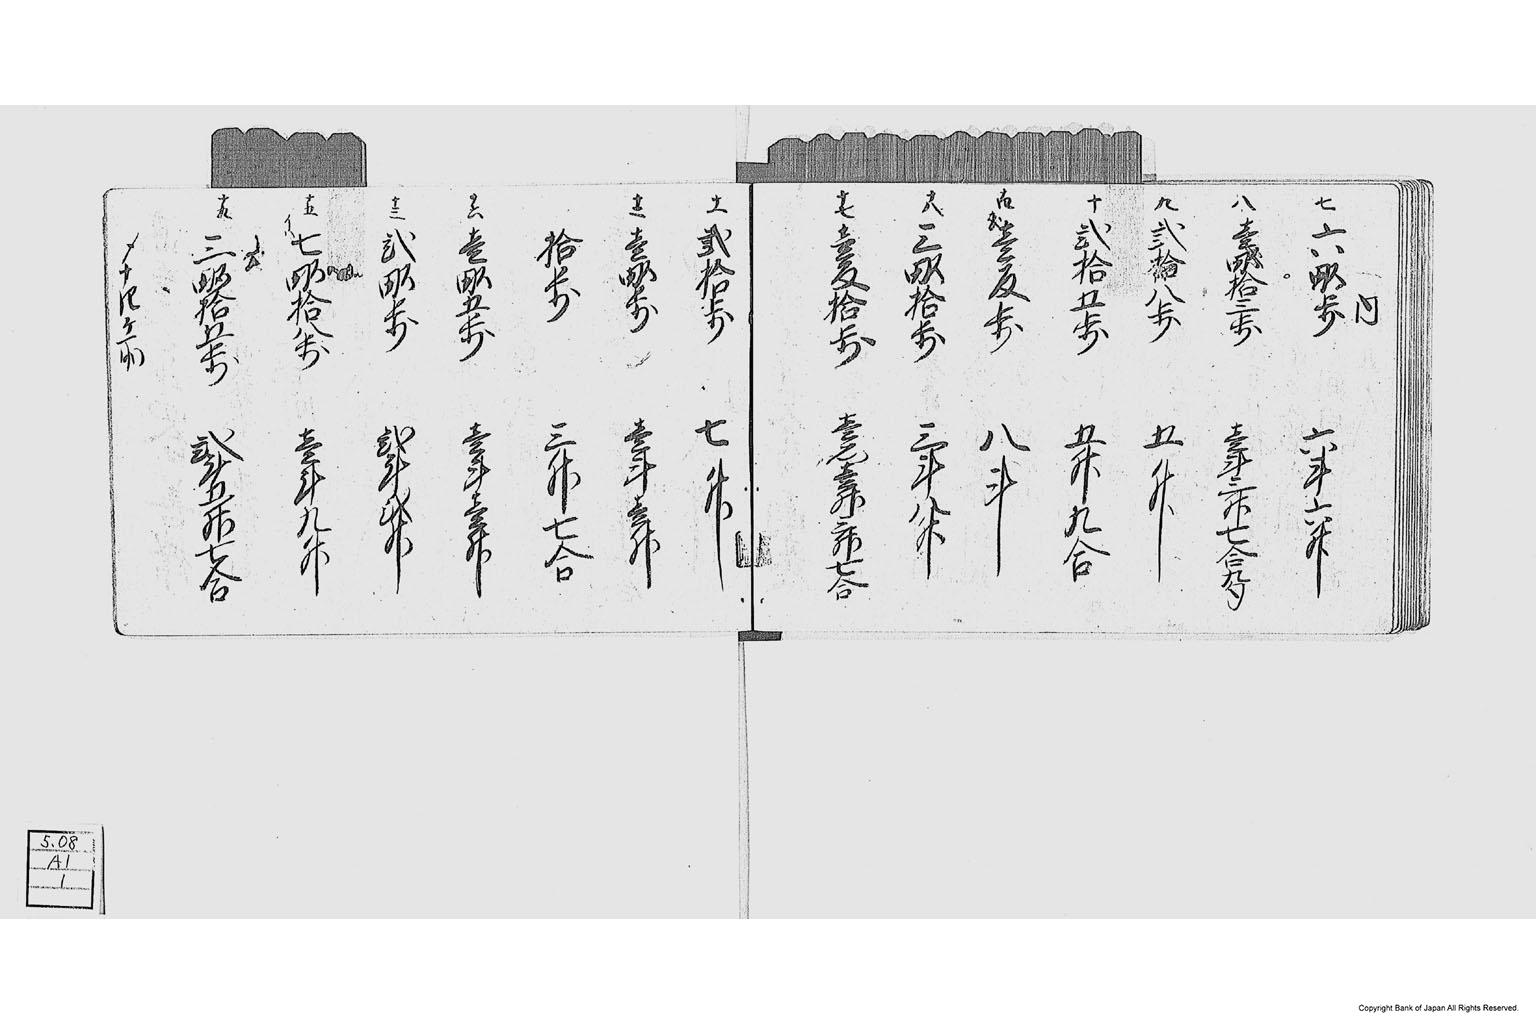 内
七 六畝歩 六斗六升
八 壱畝拾三歩 壱斗三升七合九勺
九 弐拾八歩 五升
十 弐拾五歩 五升九合
十四 壱反歩 八斗
十八 三畝拾歩 三斗八升
十七 壱反拾歩 壱石壱斗三升七合
十一 弐拾歩 七升
十二 壱畝歩 壱斗壱升
拾歩 三升七合
十六 壱畝五歩 壱斗壱升
十三 弐畝歩 弐斗弐升
十五 七畝拾八歩 壱斗九升
十九 三畝拾五歩 弐斗五升七合
〆十
5.08
A1
1
Copyright Bank of Japan All Rights Reserved.